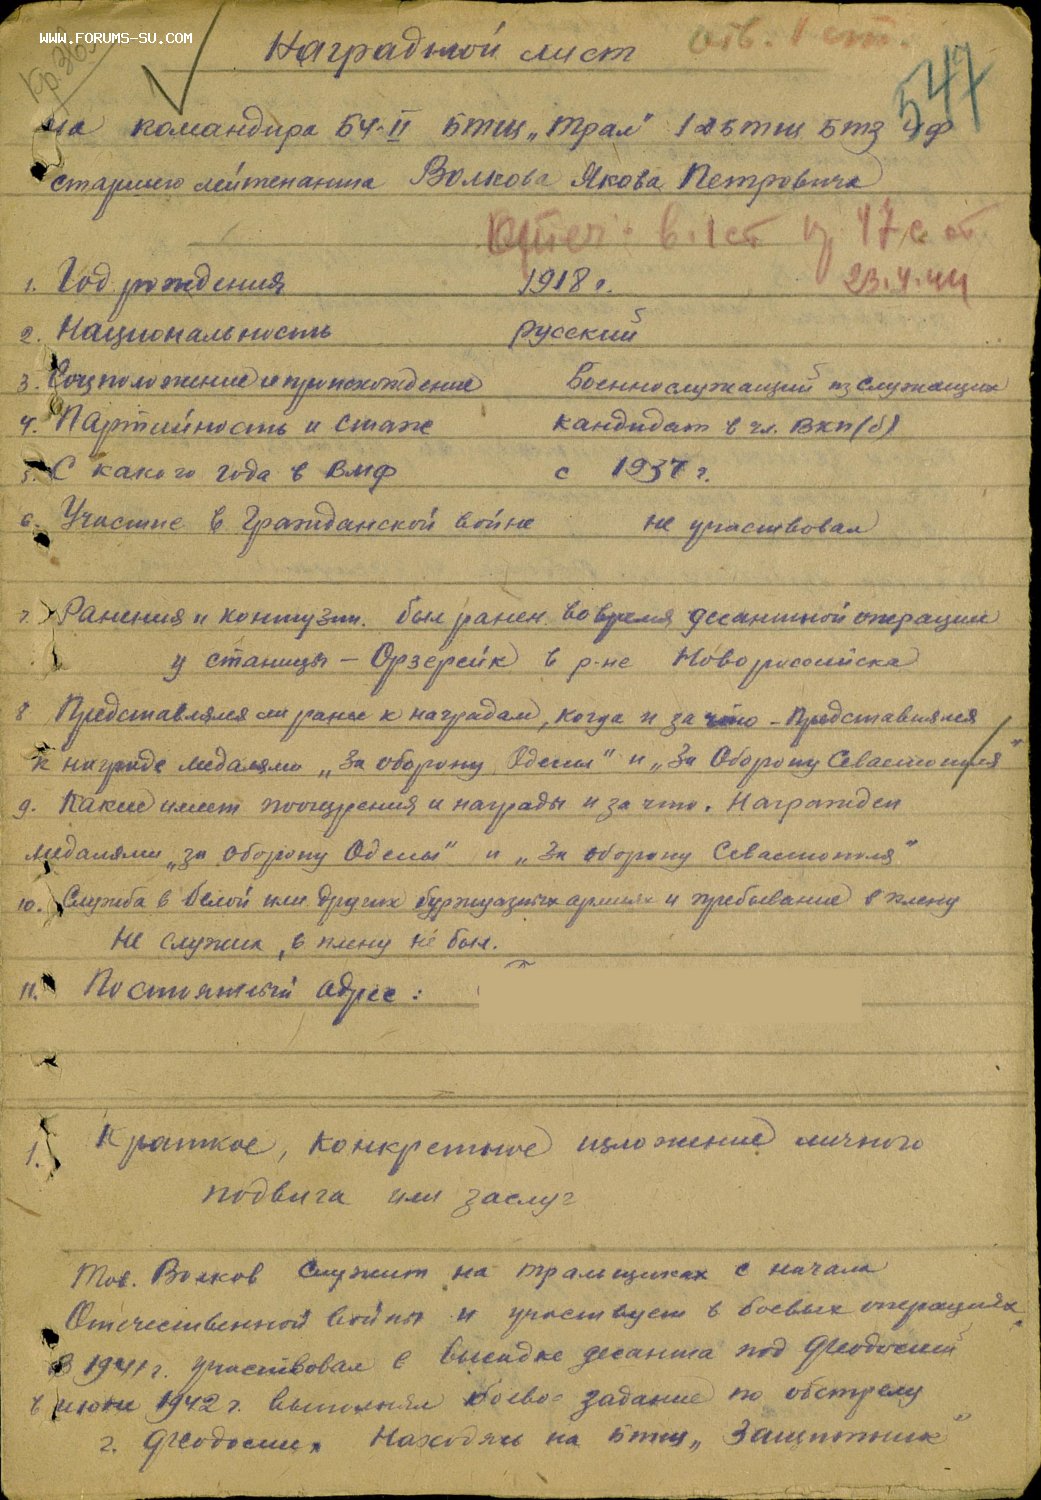 www.forums-su.com
отв. 1 ст.
Наградной лист
547
на командира БЧ-II БТЩ „Трал" 1 дбтщ БТЗ ЧФ
старшего лейтенанта Волкова Якова Петровича
Отеч. в. 1 ст пр. 47с от
23.4.44
1. Год рождения 1918 г.
2. Национальность русский
3. Соцположение и происхождение Военнослужащий из служащих
4. Партийность и стаж кандидат в чл. ВКП(б)
5. С какого года в ВМФ с 1937 г.
6. Участие в Гражданской войне не участвовал
7. Ранения и контузии. был ранен во время десантной операции
у станицы - Озерейк в р-не Новороссийска
8 Представлялся ли ранее к наградам, когда и за что - Представлялся
к награде медалями „За оборону Одессы" и „За Оборону Севастополя"
9. Какие имеет поощрения и награды и за что. Награжден
медалями „за оборону Одессы" и „За оборону Севастополя"
10. Служба в белой или других буржуазных армиях и пребывание в плену
Не служил, в плену не был.
11. Постоянный адрес:
1. Краткое, конкретное изложение личного
подвига или заслуг
Тов. Волков служит на тральщиках с начала
Отечественной войны и участвует в боевых операциях.
В 1941 г. участвовал в высадке десанта под Феодосией
в июне 1942 г. выполнял боевое задание по обстрелу
г. Феодосии. Находясь на БТЩ „Защитник"